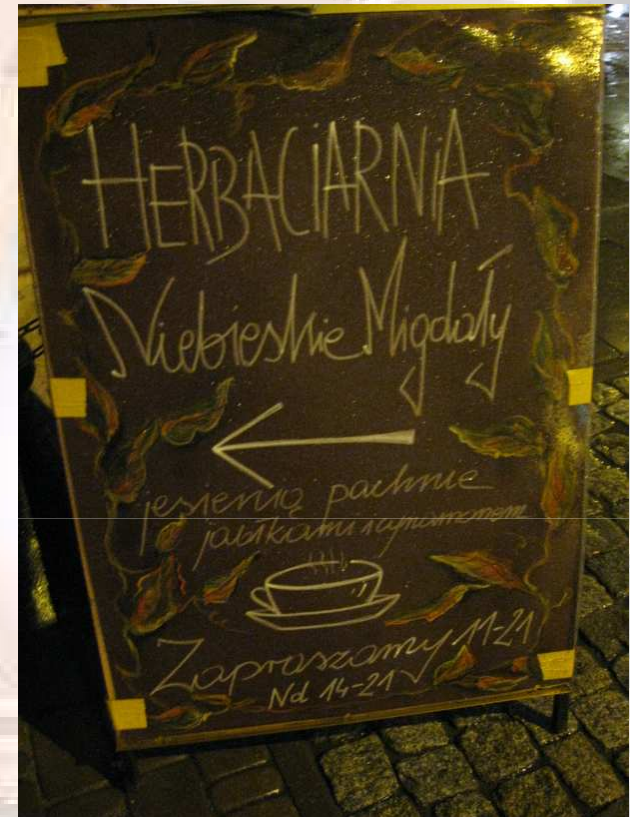 HERBACiARNiA
Niebieskie Migdały
jesienią pachnie
jabłkami i cynamonem
Zapraszamy 11-21
Nd 14-21